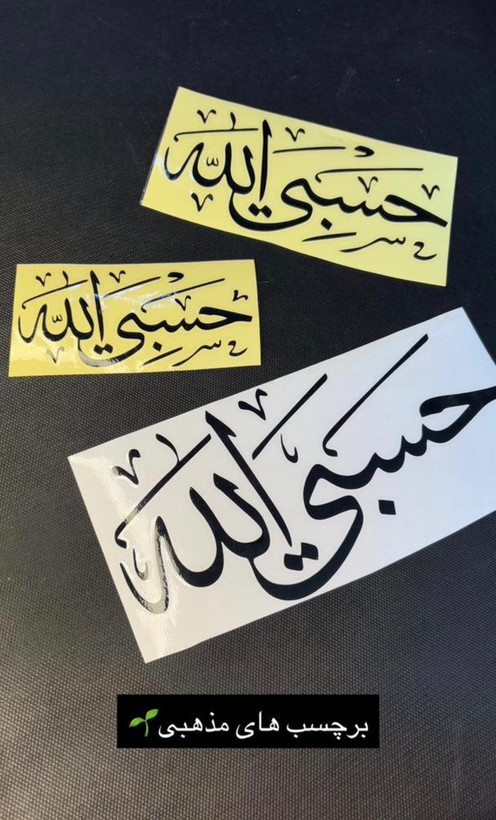 حسبي الله
حسبي الله
حسبي الله
برچسب های مذهبی🌱